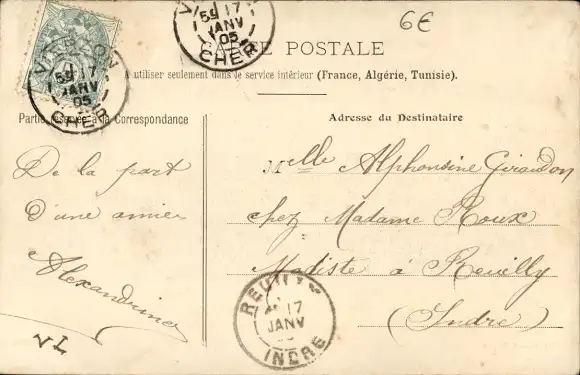 6€
CARTE POSTALE
A utiliser seulement dans le service intérieur (France, Algérie, Tunisie).
VIERZON
5E 17
JANV
05
CHER
5E 17
JANV
05
CHER
Partie réservée à la Correspondance
De la part
d'une amie
Alexandrine
Adresse du Destinataire
Melle Alphonsine Giraudon
chez Madame Roux
Modiste à Reuilly
(Indre)
REUILLY
17
JANV
INDRE